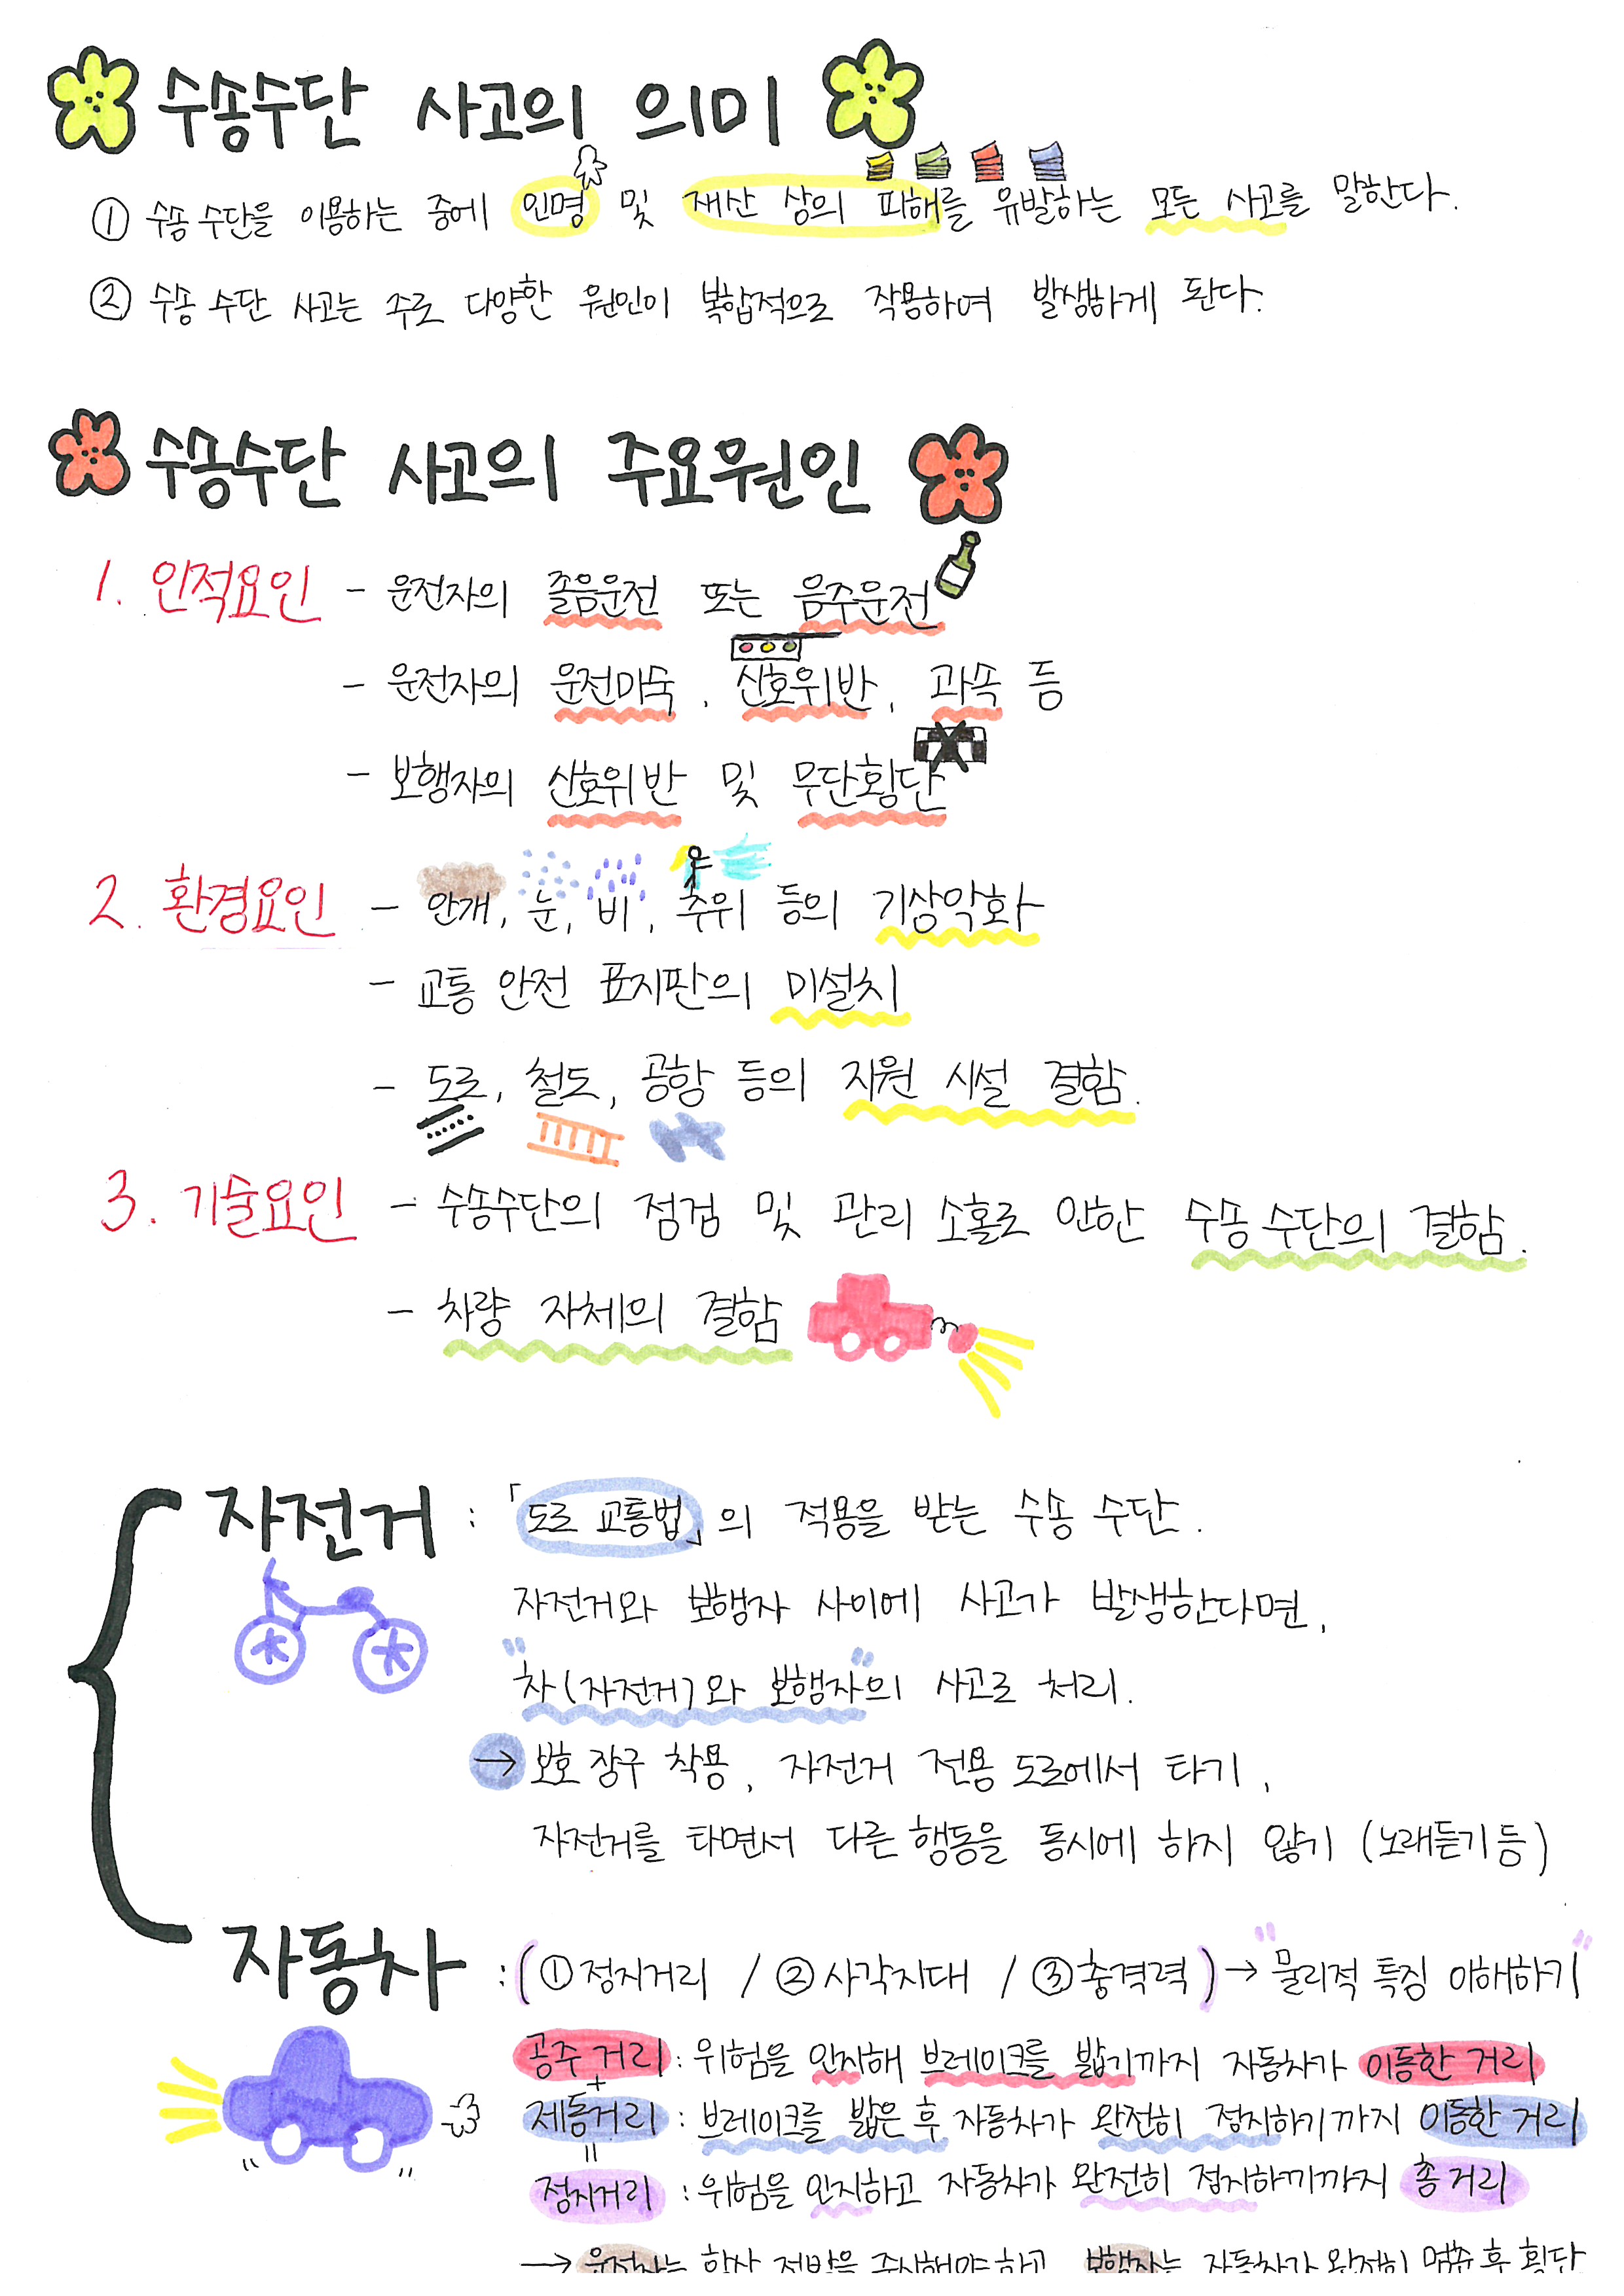 수송수단 사고의 의미
① 수송 수단을 이용하는 중에 인명 및 재산 상의 피해를 유발하는 모든 사고를 말한다.
② 수송 수단 사고는 주로 다양한 원인이 복합적으로 작용하여 발생하게 된다.
수송수단 사고의 주요원인
1. 인적요인 - 운전자의 졸음운전 또는 음주운전
- 운전자의 운전미숙, 신호위반, 과속 등
- 보행자의 신호위반 및 무단횡단
2. 환경요인 - 안개, 눈, 비, 추위 등의 기상악화
- 교통 안전 표지판의 미설치
- 도로, 철도, 공항 등의 지원 시설 결함.
3. 기술요인 - 수송수단의 점검 및 관리 소홀로 인한 수송 수단의 결함.
- 차량 자체의 결함
자전거 : 「도로 교통법」의 적용을 받는 수송 수단.
자전거와 보행자 사이에 사고가 발생한다면,
"차(자전거)와 보행자"의 사고로 처리.
→ 보호 장구 착용, 자전거 전용 도로에서 타기,
자전거를 타면서 다른 행동을 동시에 하지 않기 (노래듣기 등)
자동차 : (①정지거리 / ②사각지대 / ③충격력) → "물리적 특징 이해하기"
공주 거리 : 위험을 인지해 브레이크를 밟기까지 자동차가 이동한 거리
+
제동거리 : 브레이크를 밟은 후 자동차가 완전히 정지하기까지 이동한 거리
=
정지거리 : 위험을 인지하고 자동차가 완전히 정지하기까지 총 거리
→ 운전자는 항상 전방을 주시해야 하고, 보행자는 자동차가 완전히 멈춘 후 횡단